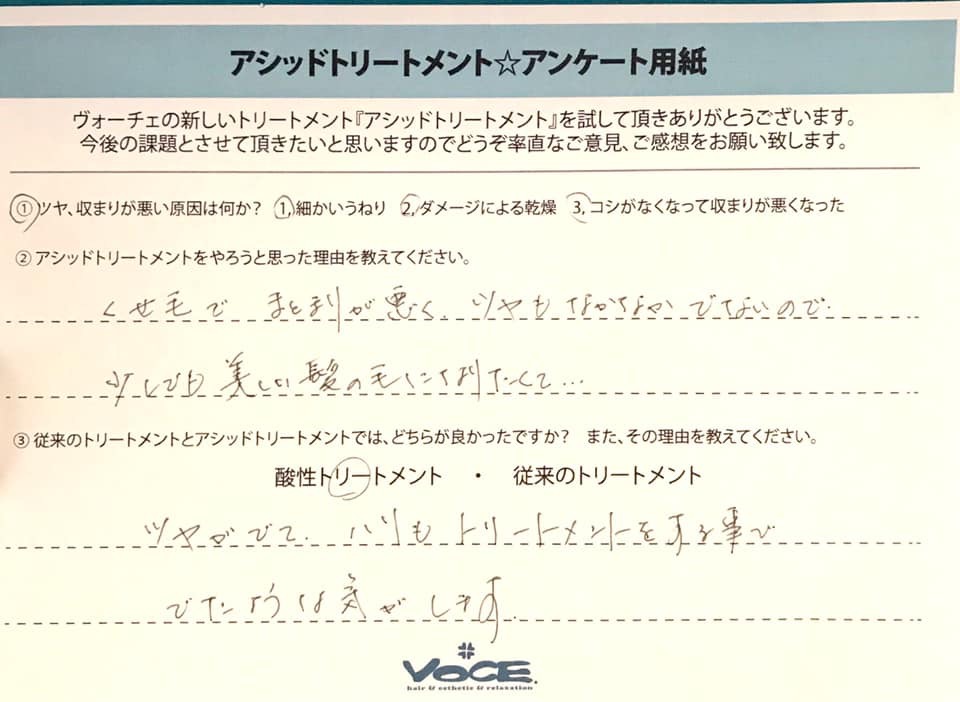 アシッドトリートメント☆アンケート用紙
ヴォーチェの新しいトリートメント『アシッドトリートメント』を試して頂きありがとうございます。
今後の課題とさせて頂きたいと思いますのでどうぞ率直なご意見、ご感想をお願い致します。
① ツヤ、収まりが悪い原因は何か? 1,細かいうねり 2,ダメージによる乾燥 3,コシがなくなって収まりが悪くなった
② アシッドトリートメントをやろうと思った理由を教えてください。
くせ毛で まとまりが悪く、ツヤもなかなかでないので、
少しでも美しい髪の毛になりたくて…
③ 従来のトリートメントとアシッドトリートメントでは、どちらが良かったですか? また、その理由を教えてください。
酸性トリートメント ・ 従来のトリートメント
ツヤがでて、ハリもトリートメントをする事で
でたような気がします。
VOCE.
hair & esthetic & relaxation